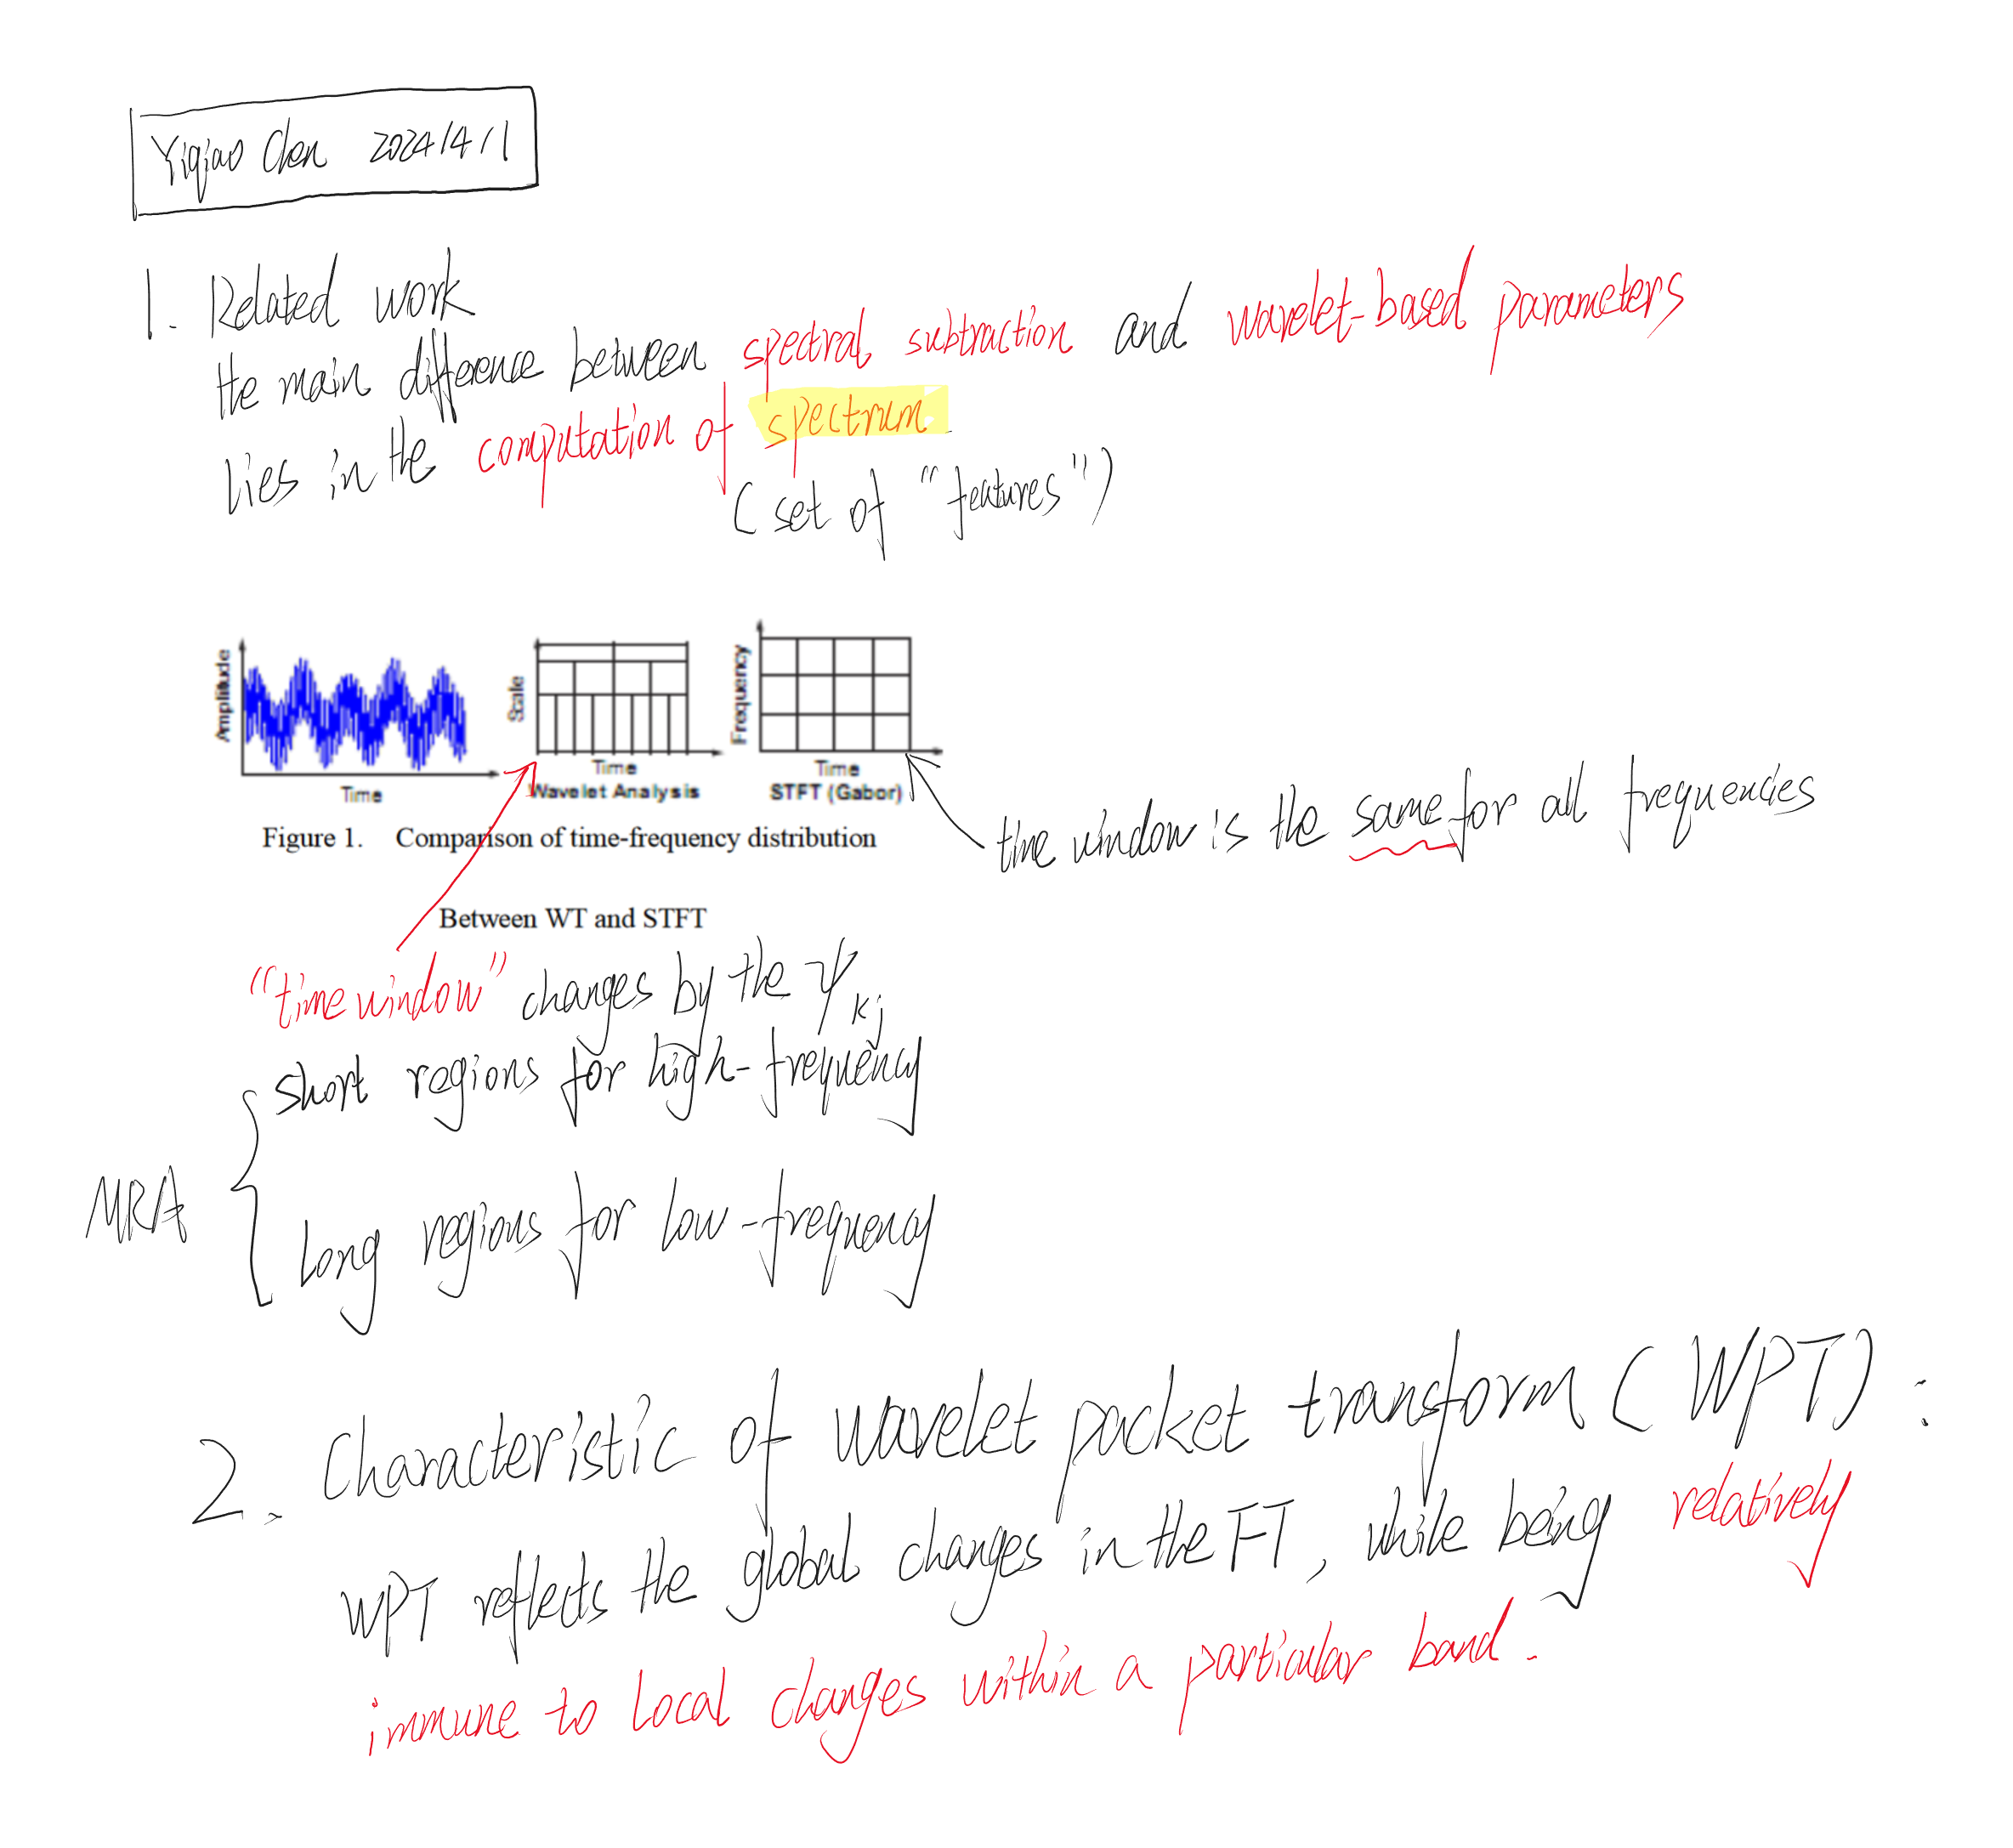 Yiqiao Chen 2024/4/1
1. Related work
the main difference between spectral subtraction and wavelet-based parameters
lies in the computation of spectrum.
(set of "features")
Amplitude
Time
Scale
Time
Wavelet Analysis
Frequency
Time
STFT (Gabor)
time window is the same for all frequencies
Figure 1. Comparison of time-frequency distribution
Between WT and STFT
"time window" changes by the ψkj
MRA
short regions for high-frequency
long regions for low-frequency
2. Characteristic of wavelet packet transform (WPT):
WPT reflects the global changes in the FT, while being relatively
immune to local changes within a particular band.